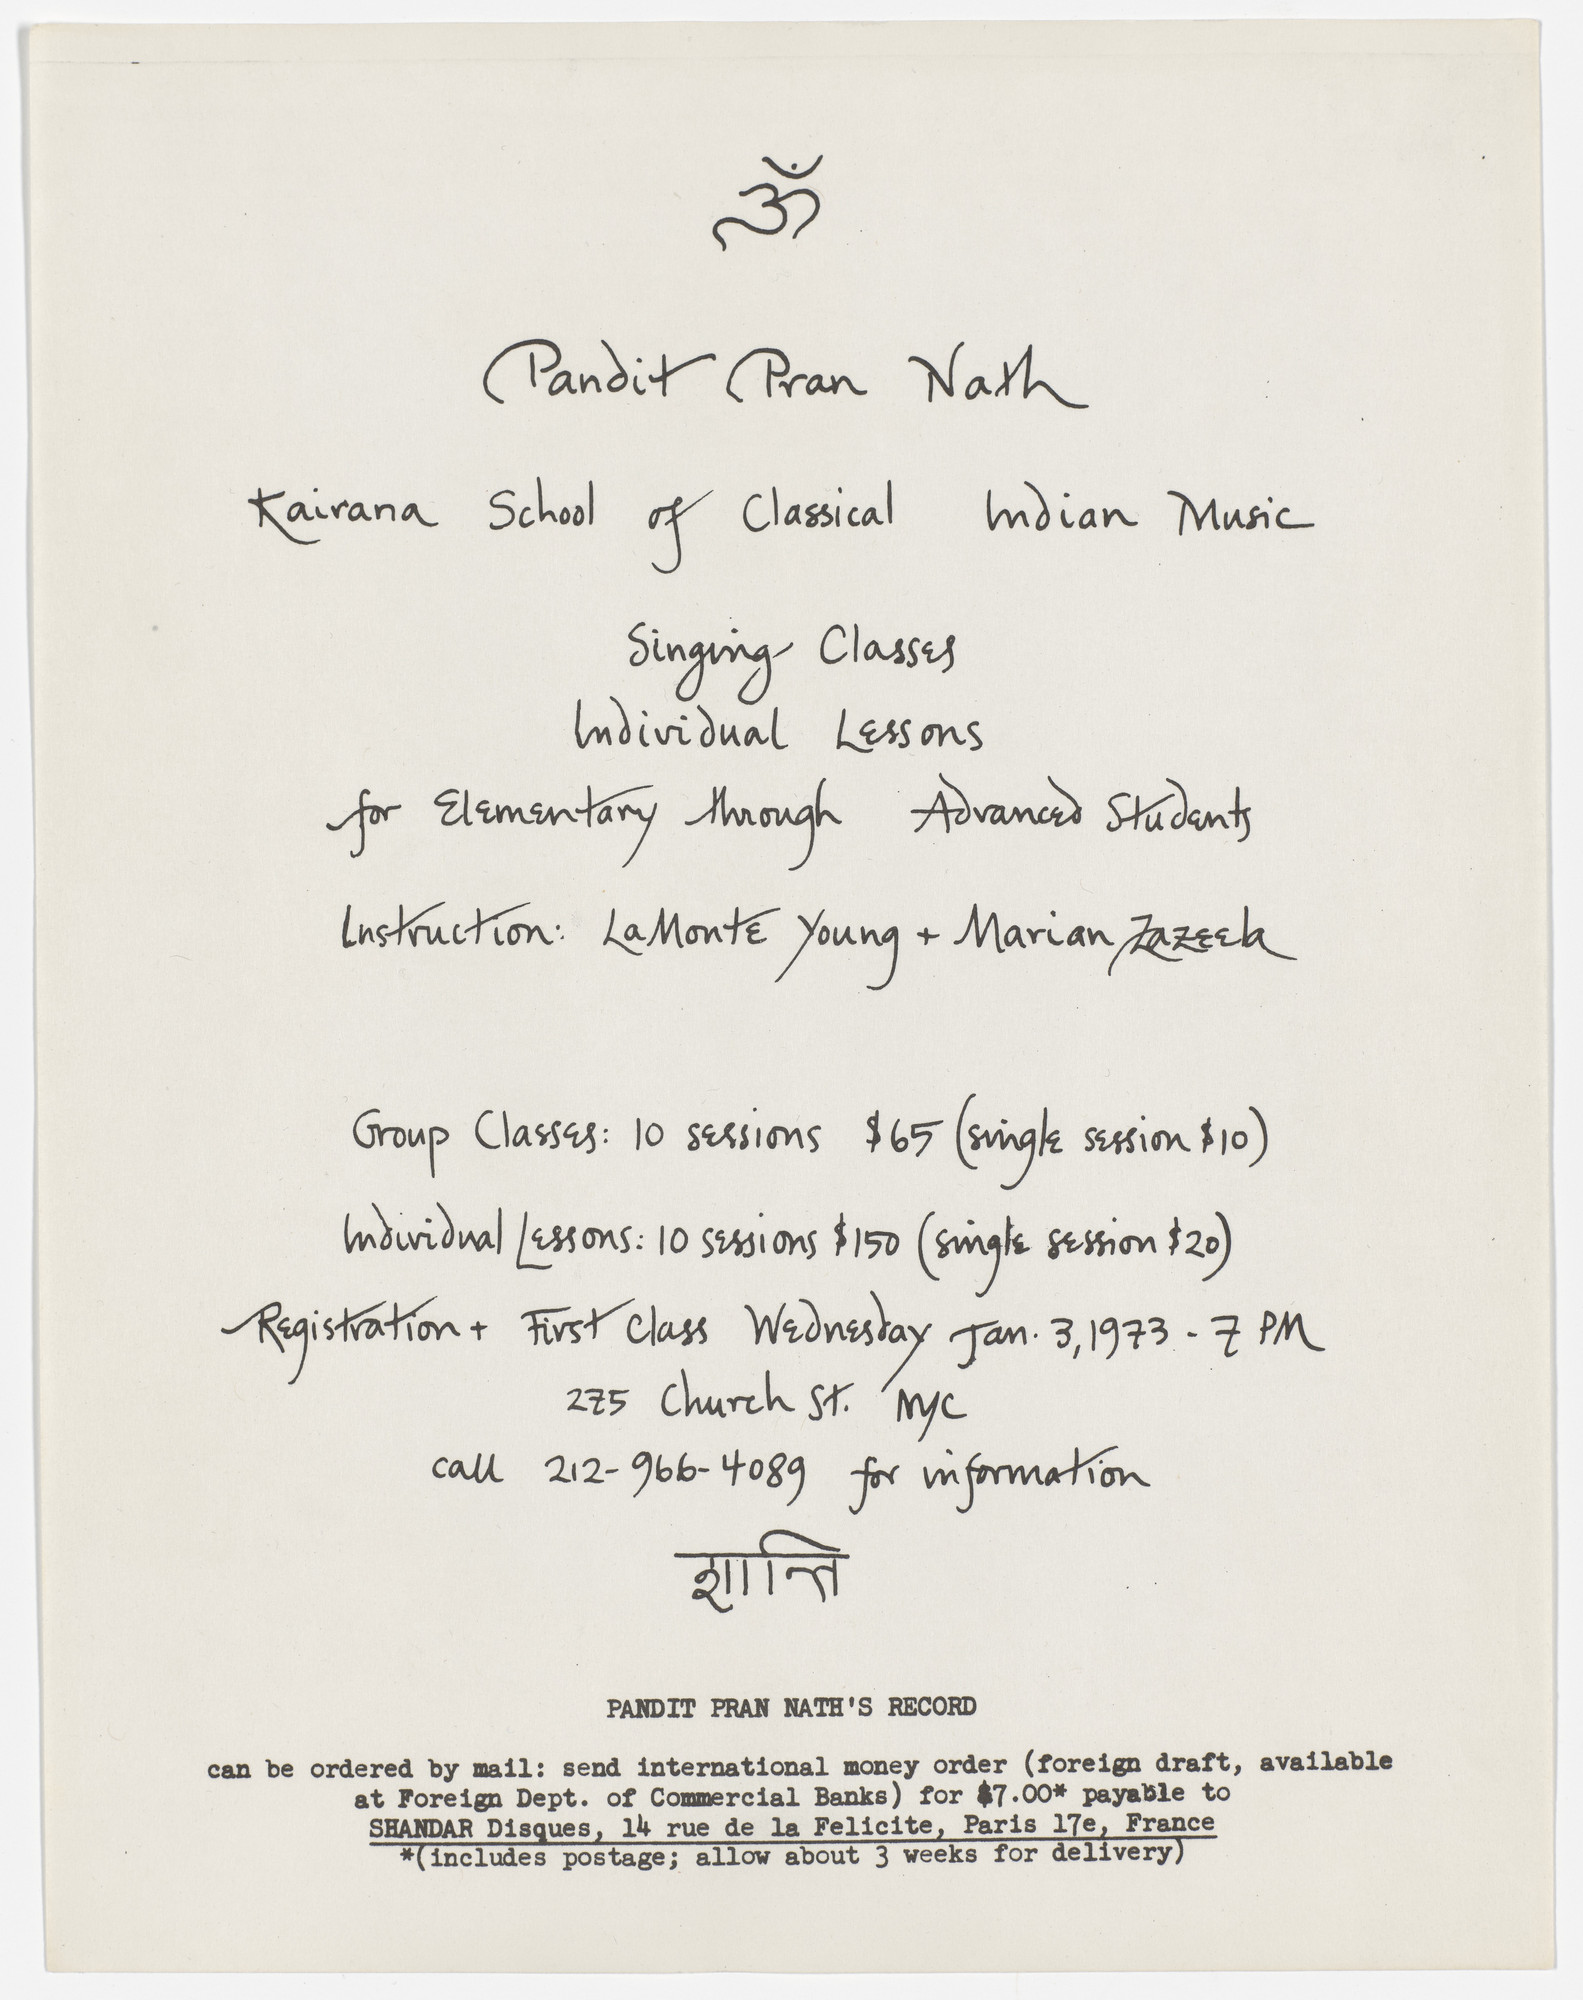 ॐ
Pandit Pran Nath
Kairana School of Classical Indian Music
Singing Classes
Individual Lessons
for Elementary through Advanced Students
Instruction: LaMonte Young + Marian Zazeela
Group Classes: 10 sessions $65 (single session $10)
Individual Lessons: 10 sessions $150 (single session $20)
Registration + First Class Wednesday Jan. 3, 1973 - 7 PM
275 Church St. NYC
call 212-966-4089 for information
शान्ति
PANDIT PRAN NATH'S RECORD
can be ordered by mail: send international money order (foreign draft, available
at Foreign Dept. of Commercial Banks) for $7.00* payable to
SHANDAR Disques, 14 rue de la Felicite, Paris 17e, France
*(includes postage; allow about 3 weeks for delivery)